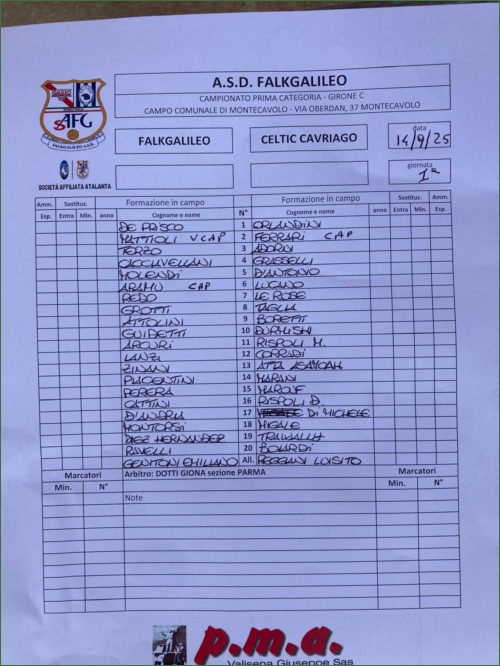 A.S.D. FALKGALILEO
CAMPIONATO PRIMA CATEGORIA - GIRONE C
CAMPO COMUNALE DI MONTECAVOLO - VIA OBERDAN, 37 MONTECAVOLO
FALKGALILEO A.S.D.
FALKGALILEO CELTIC CAVRIAGO data 14/9/25
giornata 1ª
SOCIETÀ AFFILIATA ATALANTA
Amm. Sostituz. Formazione in campo Formazione in campo Sostituz. Amm.
Esp. Entra Min. anno Cognome e nome N° Cognome e nome anno Entra Min. Esp.
DE PASCO 1 ORLANDINI
MATTIOLI VCAP 2 FERRARI CAP
TERZO 3 ADORNI
CACCIAVELLANI 4 GRASSELLI
MOLENDI 5 D'ANTONIO
ARAMU CAP 6 LUGANO
REDO 7 LE ROSE
GROTTI 8 TAGLIA
ATTOLINI 9 BORETTI
GUIDETTI 10 DURMISHI
ARCURI 11 RISPOLI M.
LANZI 12 CORRADI
ZINANI 13 ATTA ASAMOAH
PIACENTINI 14 MARANI
PERERA 15 MAROUF
CATTINI 16 RISPOLI D.
D'ANDRIA 17 DI MICHELE
MONTORSI 18 MIGALE
DIEZ HERNANDEZ 19 TRAWALLY
RAVELLI 20 BOLARDI
GENITONI EMILIANO All. REGGIANI LUISITO
Marcatori Arbitro: DOTTI GIONA sezione PARMA Marcatori
Min. N° Note Min. N°
p.m.a.
Valisena Giuseppe Sas